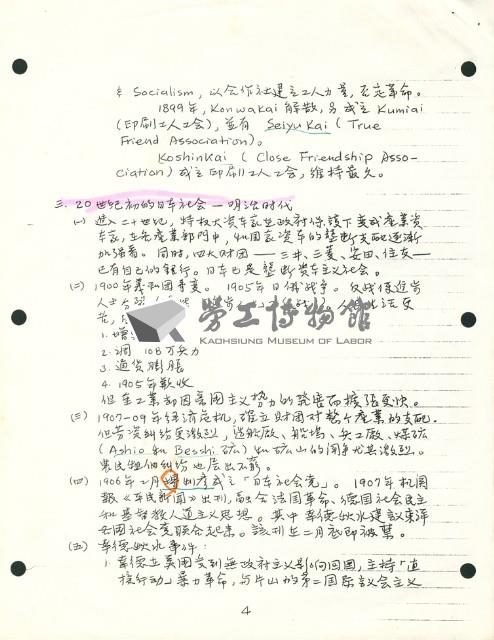 & Socialism, 以合作社建立工人力量, 否定革命。
1899年, Konwakai 解散, 另成立 Kumiai
(印刷工人工会), 並有 Seiyu Kai ( True
Friend Association)。
KoshinKai ( Close Friendship Asso-
ciation) 成立印刷工人工会, 維持最久。
三. 20世紀初的日本社会 — 明治时代
(一) 進入二十世紀, 特权大资本家在政府保護下变成產業资
本家, 在各產業部门中, 和国家资本的壟断支配逐漸
加強着。同时, 四大财团 —— 三井、三菱、安田、住友 —
已有自己的银行。日本已是壟断资本主义社会。
(二) 1900年義和团事变。1905年日俄战争。
1. 增
2. 調 108万兵力
3. 通貨膨脹
4. 1905年歉收
但重工業却因軍国主义势力的發展而擴張更快。
(三) 1907-09年经济危机, 確立财团对整个產業的支配.
但劳资纠纷更激烈, 造船廠、船塢、兵工廠、煤砿
(Ashio 和 Besshi 砿) 和砿山的闹争尤其激烈。
農民組佃纠纷也层出不窮。
(四) 1906年二月堺利彦成立「日本社会党」。1907年机関
報《平民新聞》出刊, 融合法国革命、德国社会民主
和基督教人道主义思想。其中幸德秋水建議東洋
各国社会党联合起來。該刊在二月底即被禁。
(五) 幸德秋水事件:
1. 幸德在美国受到無政府主义影响回国, 主持「直
接行动」暴力革命, 与片山的第二国际议会主义
4
勞工博物館
KAOHSIUNG MUSEUM OF LABOR